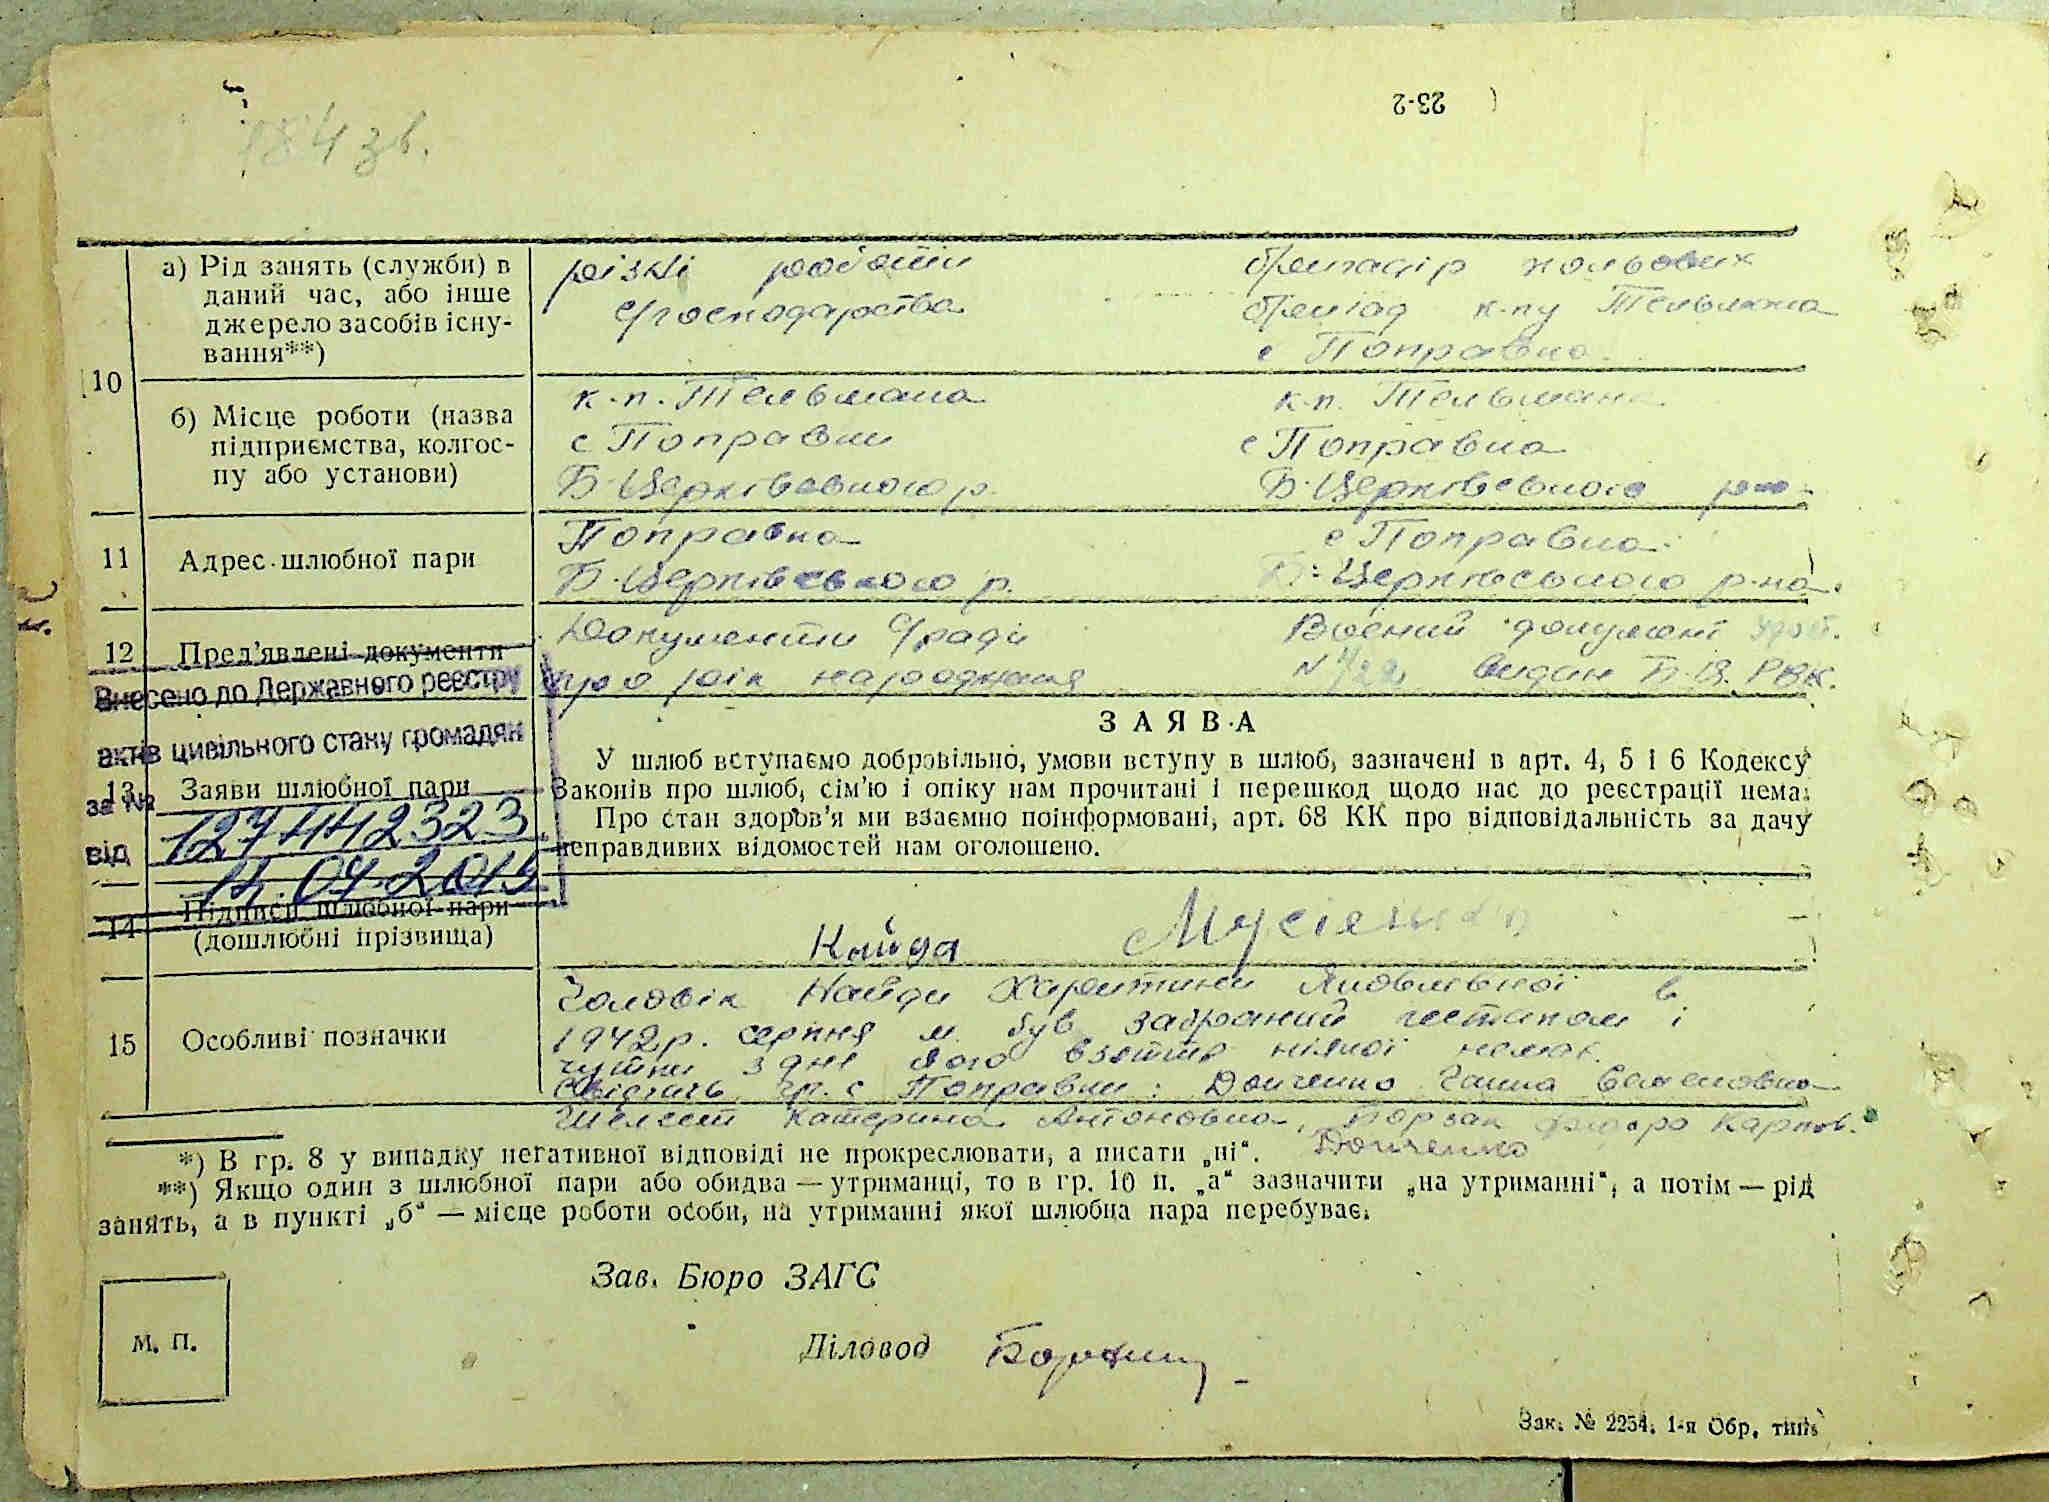 23-2
184 зв.
10
а) Рід занять (служби) в даний час, або інше джерело засобів існування**)
різні роботи
с/господарства
бригадір польових
бригад к-пу Тельмана
с Поправка
б) Місце роботи (назва підприємства, колгоспу або установи)
к.п. Тельмана
с Поправки
Б-Церківського р.
к.п. Тельмана
с Поправка
Б-Церківського р-на
11
Адрес шлюбної пари
Поправка
Б-Церківського р.
с Поправка
Б-Церківського р-на.
12
Пред'явлені документи
Документи с/ради
про рік народження
Воєний документ
видан Б.Ц. РВК.
Внесено до Державного реєстру
актів цивільного стану громадян
за №
від
13
Заяви шлюбної пари
ЗАЯВА
У шлюб вступаємо добровільно, умови вступу в шлюб, зазначені в арт. 4, 5 і 6 Кодексу
Законів про шлюб, сім'ю і опіку нам прочитані і перешкод щодо нас до реєстрації нема.
Про стан здоров'я ми взаємно поінформовані, арт. 68 КК про відповідальність за дачу
неправдивих відомостей нам оголошено.
14
Підписи шлюбної пари
(дошлюбні прізвища)
Кайда
Мусієнко
15
Особливі позначки
Чоловік Найди Харитини Яковлевної в
1942р. серпня м. був забраний гестапом і
чутки з дня його взяття ніякої немає.
Свідчать гр. с Поправки: Донченко Ганна Семеновна
Шелест Катерина Антоновна, Борзак Федора Карпов.
Донченко
*) В гр. 8 у випадку негативної відповіді не прокреслювати, а писати „ні“.
**) Якщо один з шлюбної пари або обидва — утриманці, то в гр. 10 п. „а“ зазначити „на утриманні“, а потім — рід
занять, а в пункті „б“ — місце роботи особи, на утриманні якої шлюбна пара перебуває.
Зав. Бюро ЗАГС
М. П.
Діловод
Зак. № 2254. 1-я Обр. тип.